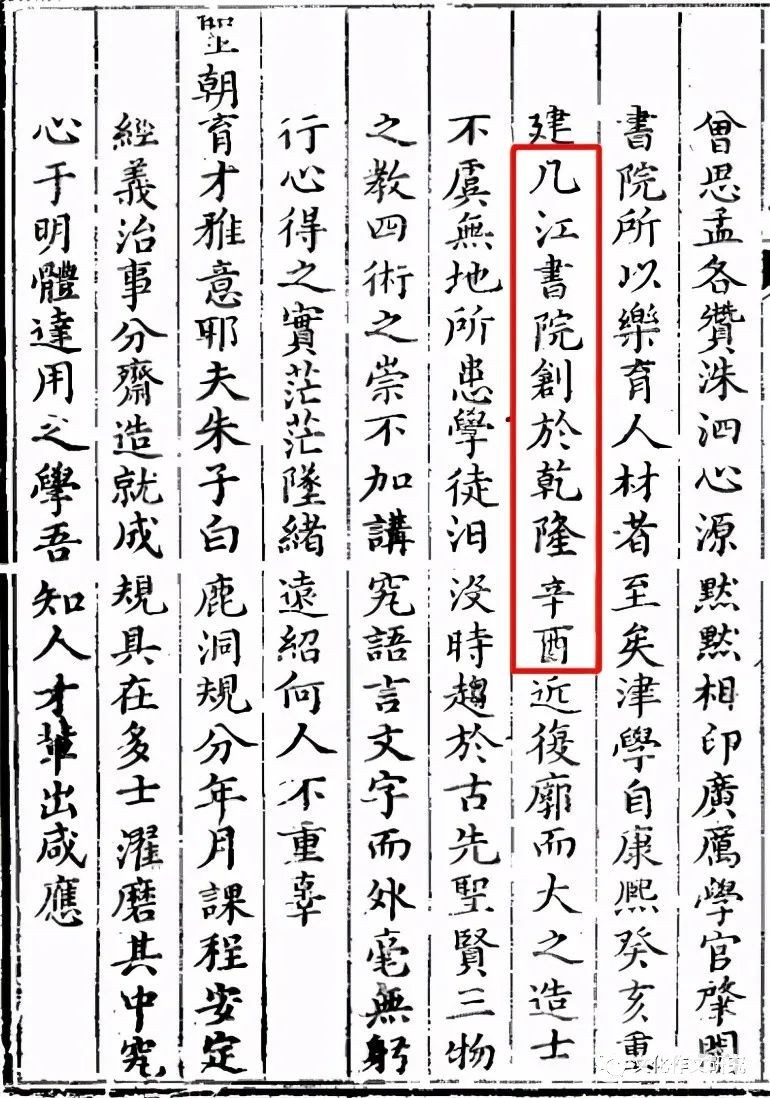 曾思孟各贊洙泗心源默默相印廣厲學官肇開
書院所以樂育人材者至矣津學自康熙癸亥重
建几江書院創於乾隆辛酉近復廓而大之造士
不虞無地所患學徒汨沒時趨於古先聖賢三物
之教四術之崇不加講究語言文字而外毫無躬
行心得之實茫茫墜緒遠紹何人不重辜
聖朝育才雅意耶夫朱子白鹿洞規分年月課程安定
經義治事分齋造就成規具在多士濯磨其中究
心于明體達用之學吾知人才輩出咸應
文化作文研究